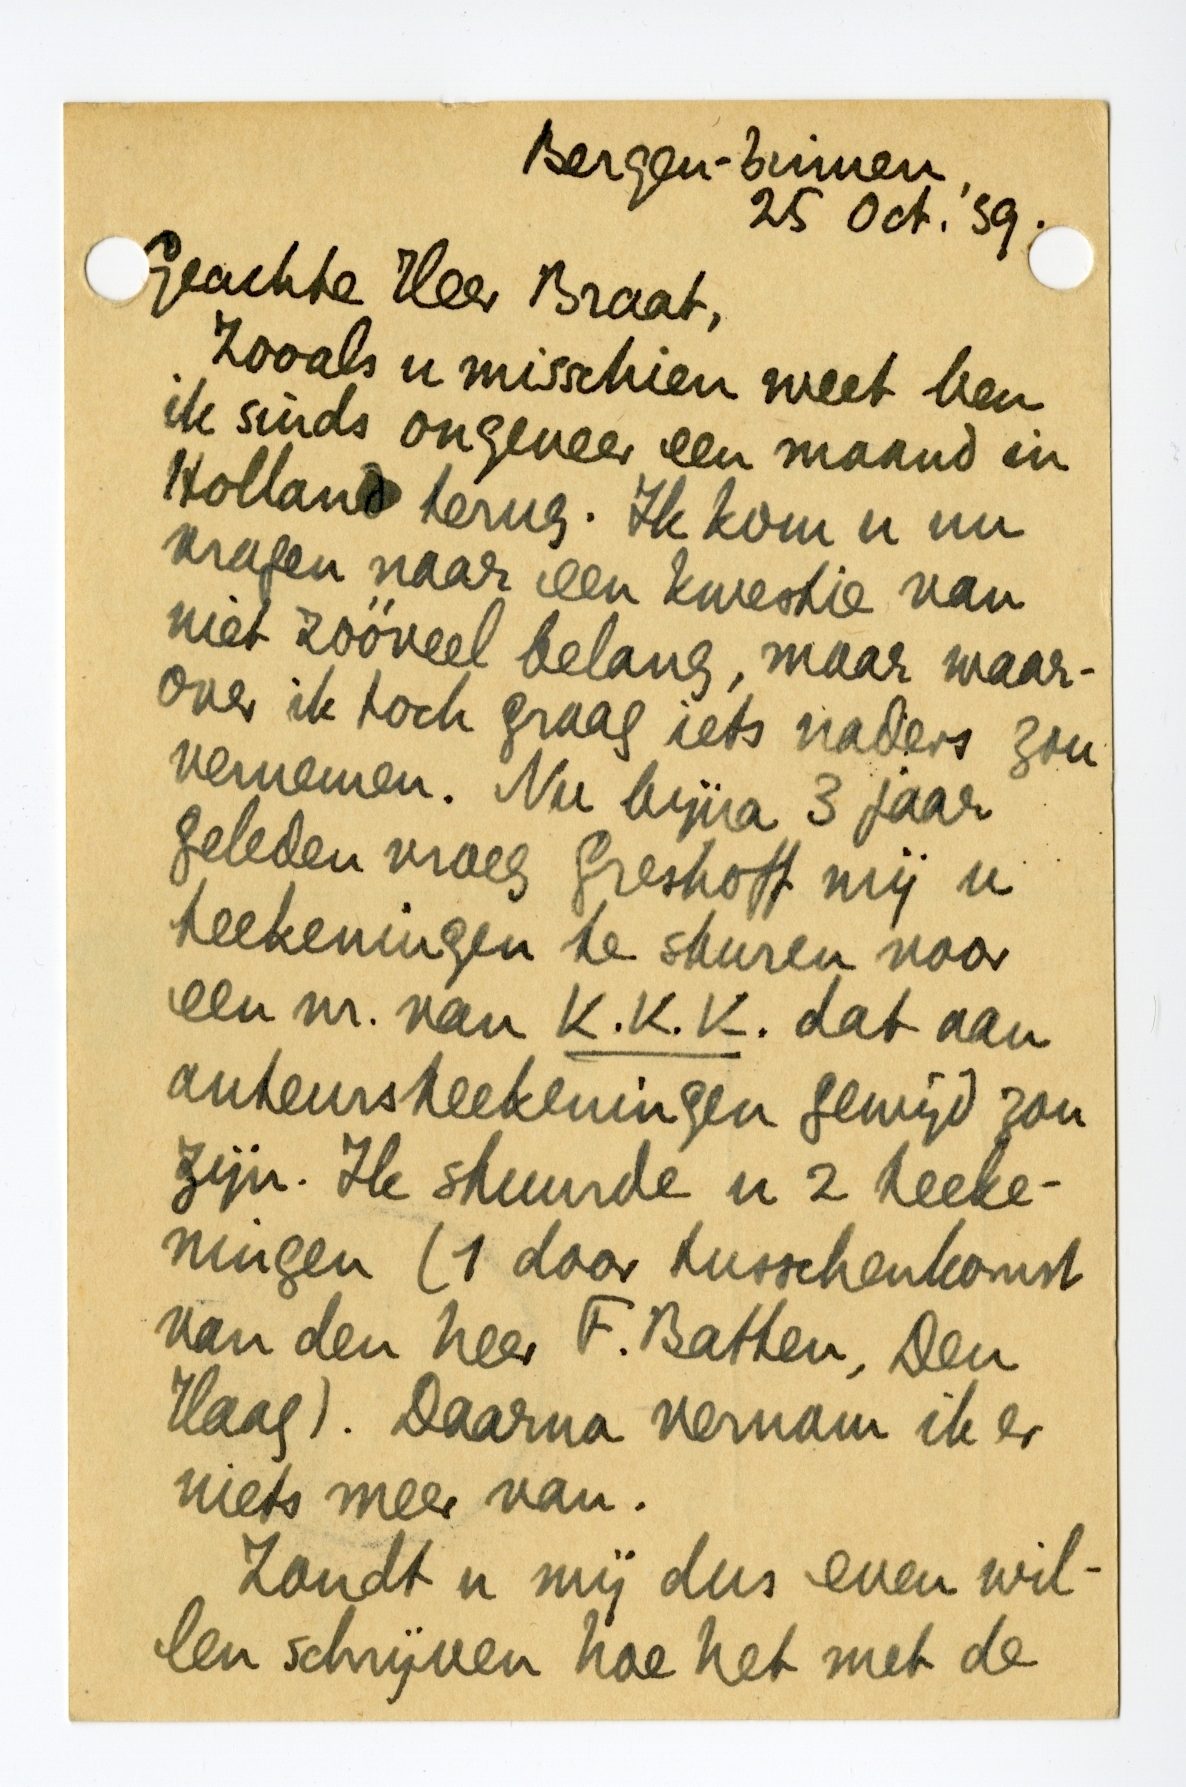 Bergen-binnen,
25 Oct. '39.
Geachte Heer Braat,
Zooals u misschien weet ben
ik sinds ongeveer een maand in
Holland terug. Ik kom u nu
vragen naar een kwestie van
niet zööveel belang, maar waar-
over ik toch graag iets naders zou
vernemen. Nu bijna 3 jaar
geleden vroeg Greshoff mij u
teekeningen te sturen voor
een nr. van K.K.K. dat aan
auteursteekeningen gewijd zou
zijn. Ik stuurde u 2 teeke-
ningen (1 door tusschenkomst
van den heer F. Batten, Den
Haag). Daarna vernam ik er
niets meer van.
Zoudt u mij dus even wil-
len schrijven hoe het met de